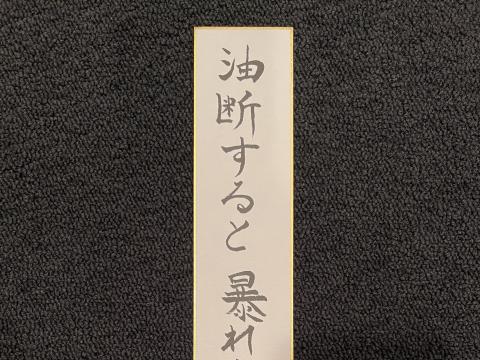 油断すると暴れ